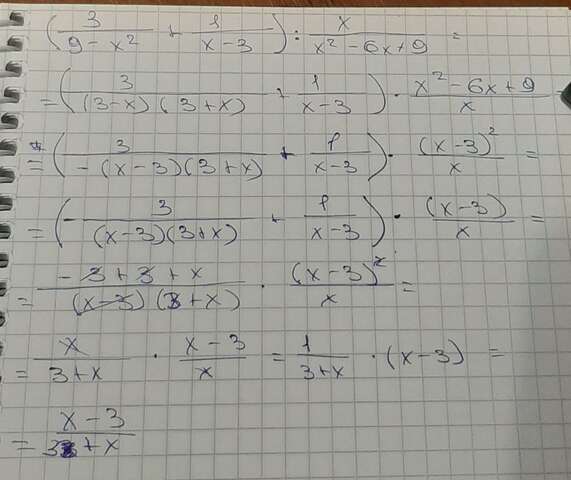 (3/(9 - x²) + 1/(x - 3)) : x/(x² - 6x + 9) =
= (3/((3-x)(3+x)) + 1/(x-3)) · (x² - 6x + 9)/x =
= (3/(-(x-3)(3+x)) + 1/(x-3)) · (x-3)²/x =
= (-3/((x-3)(3+x)) + 1/(x-3)) · (x-3)/x =
= (-3+3+x)/((x-3)(3+x)) · (x-3)²/x =
= x/(3+x) · (x-3)/x = 1/(3+x) · (x-3) =
= (x-3)/(3+x)